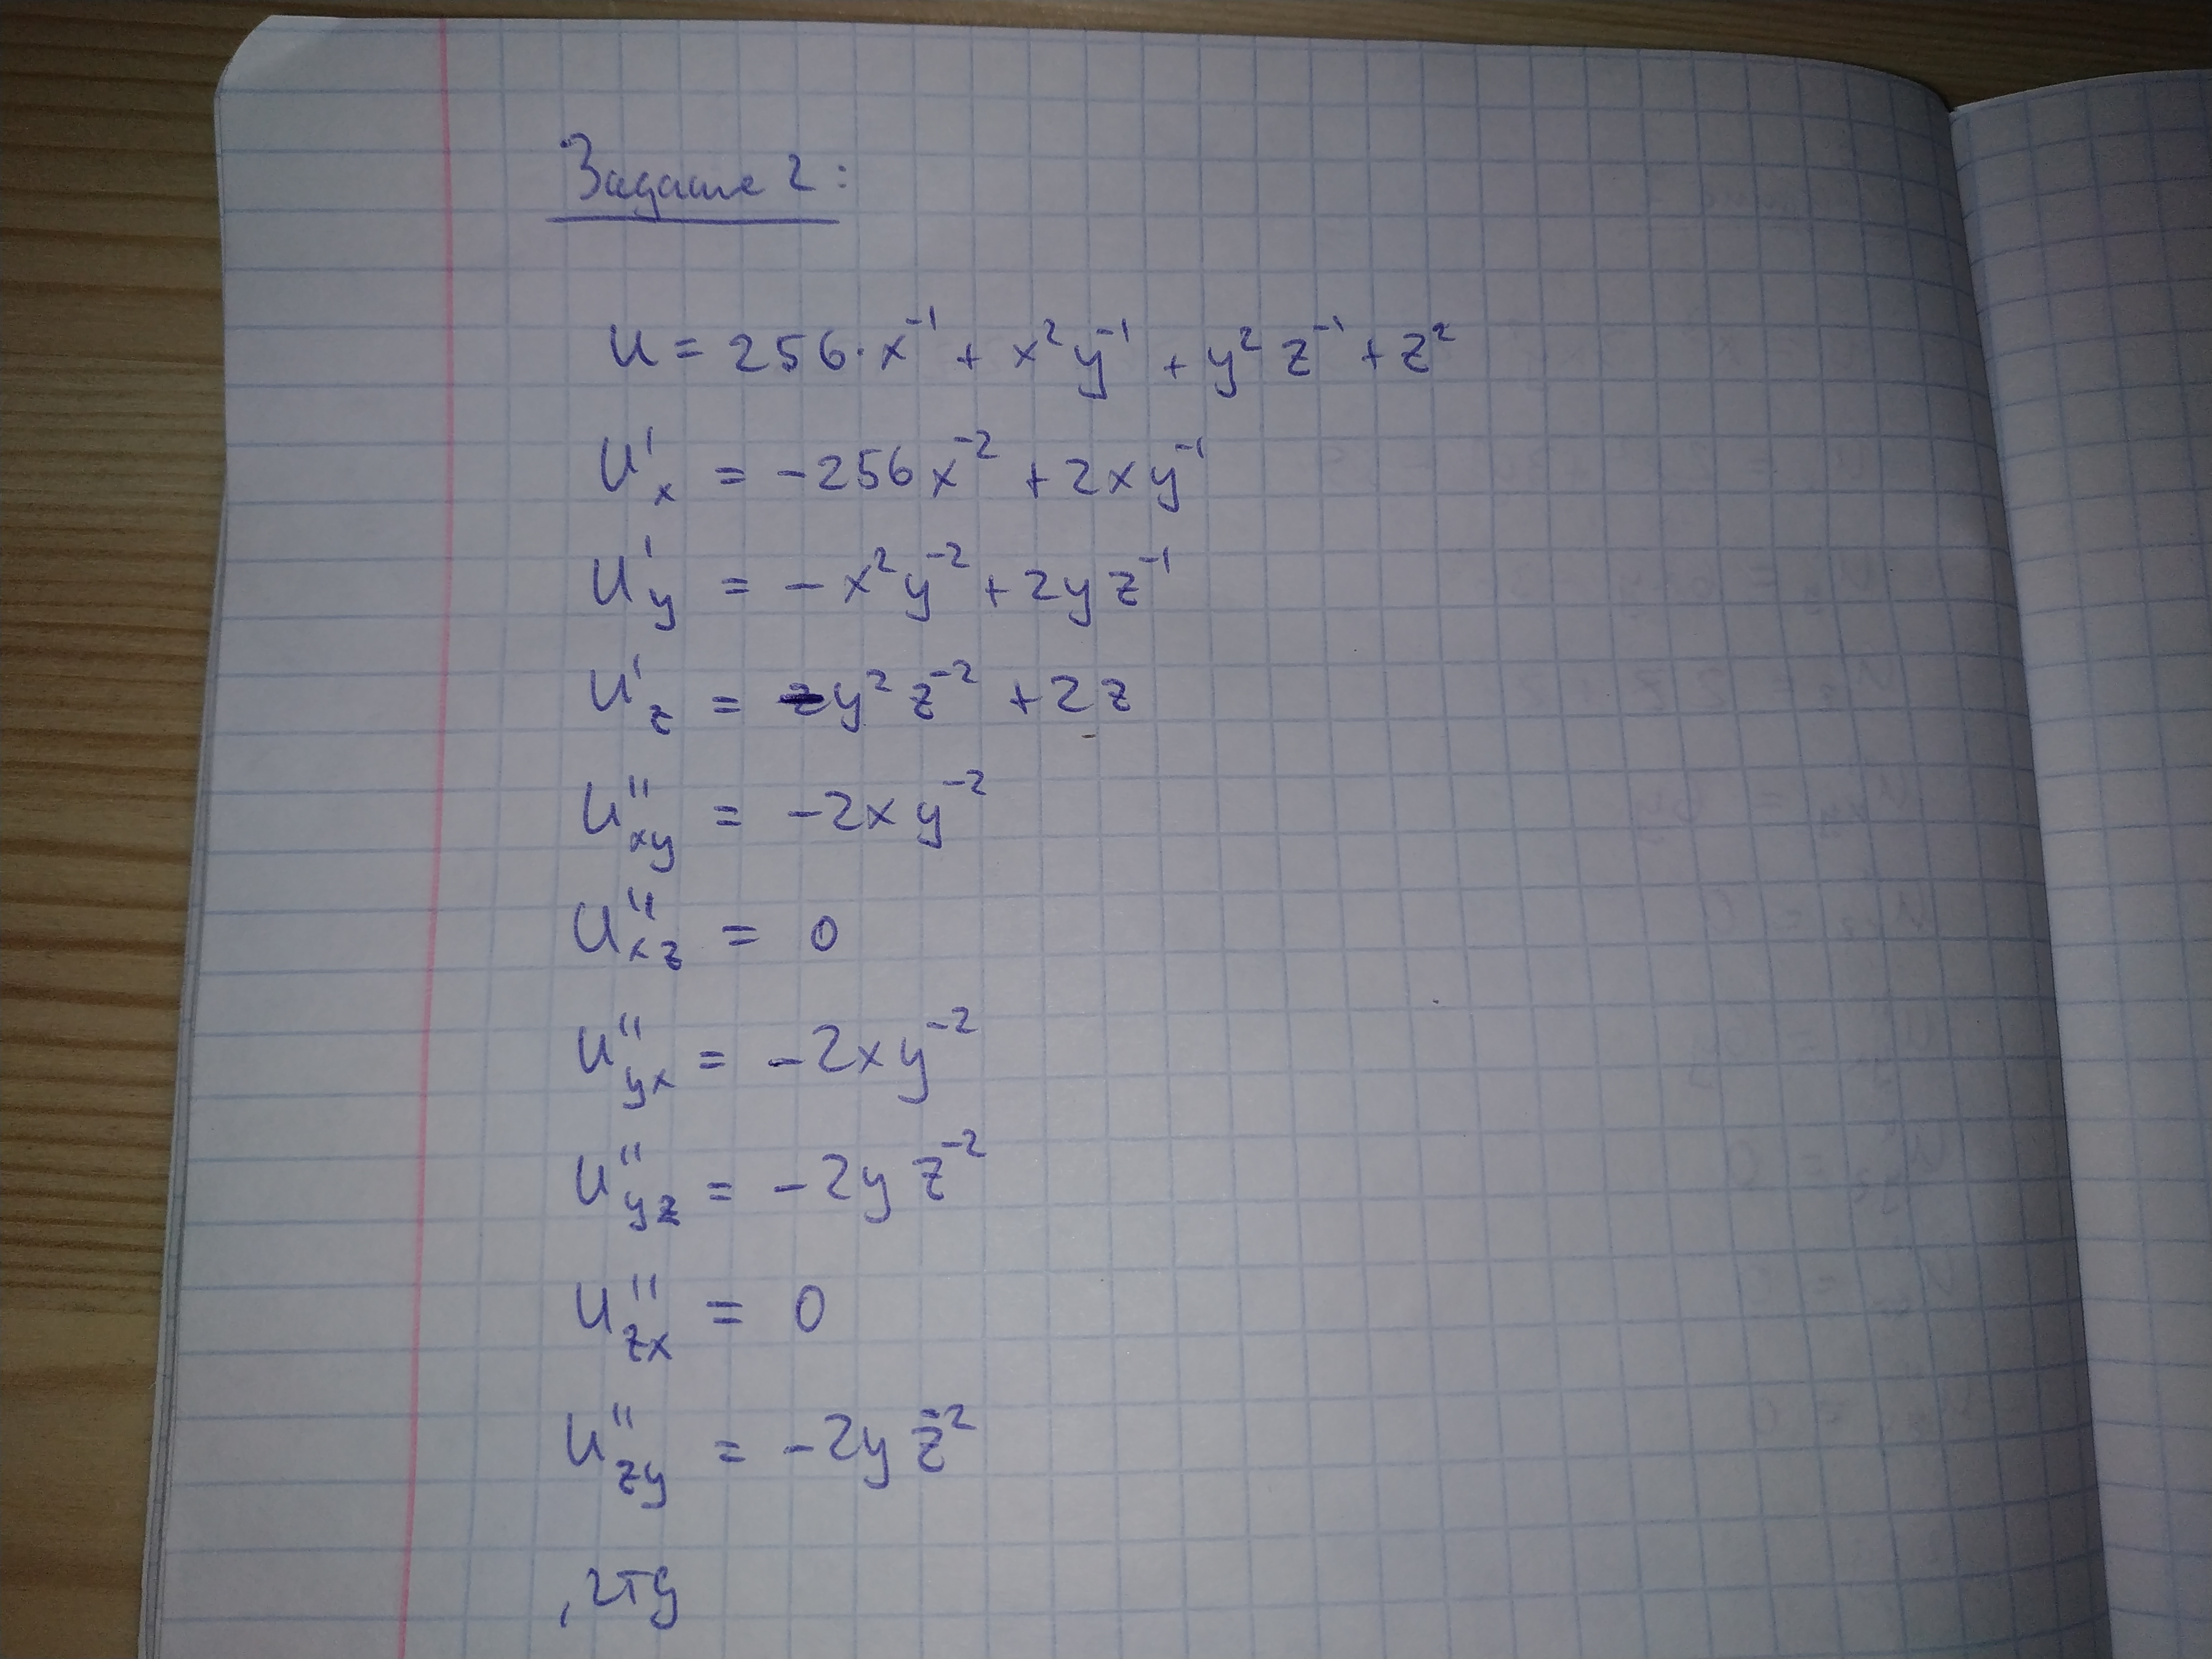 Задание 2:
U = 256·x⁻¹ + x²y⁻¹ + y²z⁻¹ + z²
U'ₓ = -256x⁻² + 2xy⁻¹
U'y = -x²y⁻² + 2yz⁻¹
U'z = -y²z⁻² + 2z
U''xy = -2xy⁻²
U''xz = 0
U''yx = -2xy⁻²
U''yz = -2yz⁻²
U''zx = 0
U''zy = -2yz⁻²
, чтд